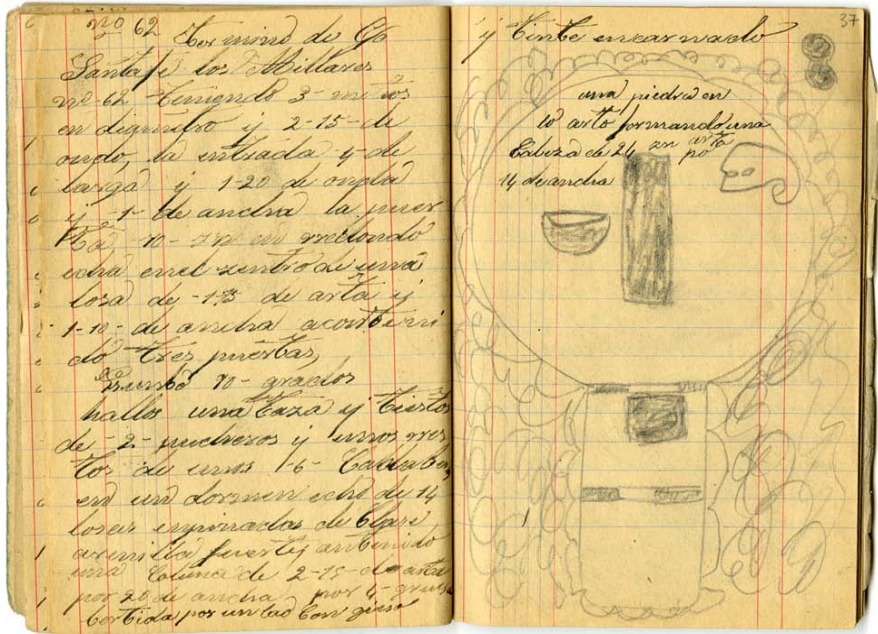 no 62 Termino de Go
Santafe los Millares
no 62 teniendo 3- metros
en diametro y 2-15- de
ondo, la entrada 4 de
larga y 1-20 de
y -1- de ancha la puer
ta 70- en rredondo
en el zentro de una
losa de -1-35 de arta y
1-10- de ancha
do tres puertas,
rumbo 70- grados
hallos una taza y tiestos
de -2- pucheros y unos rres
tos de unos -6-
en un dormen echo de 14
losas empinadas de 6 clase,
arenilla fuerte y antenido
una Coluna de 2-15- de arta
por 20 de ancha por 4- grue
bertida por un lao Con gieso
37
y tinte encarnado
una piedra en
lo arto formando una
Cabeza de 24 zn arta
po
14 de ancha